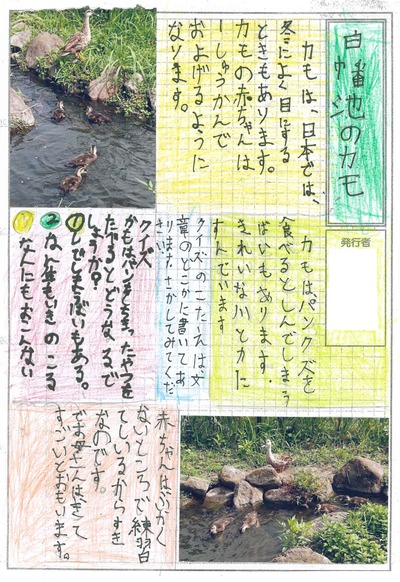 白幡池のカモ
発行者
カモは、日本では、
冬によく目にする
ときもあります。
カモの赤ちゃんは
一しゅうかんで
およげるように
なります。
カモはパンクズを
食べるとしんでしまう
ばいもあります.
きれいな川とかに
すんでいます
クイズのこたえは文
章のどこかに書いてあ
ります.さがしてみてくだ
さい
クイズ
たべるとどうなるで
しょうか?
①しんでしまうばいもある。
②なん年もいきのこる
③なんにもおこらない
赤ちゃんはふかく
ないところで練習
しているからすき
なのです。
でお母さんはきて
すごいとおもいます。